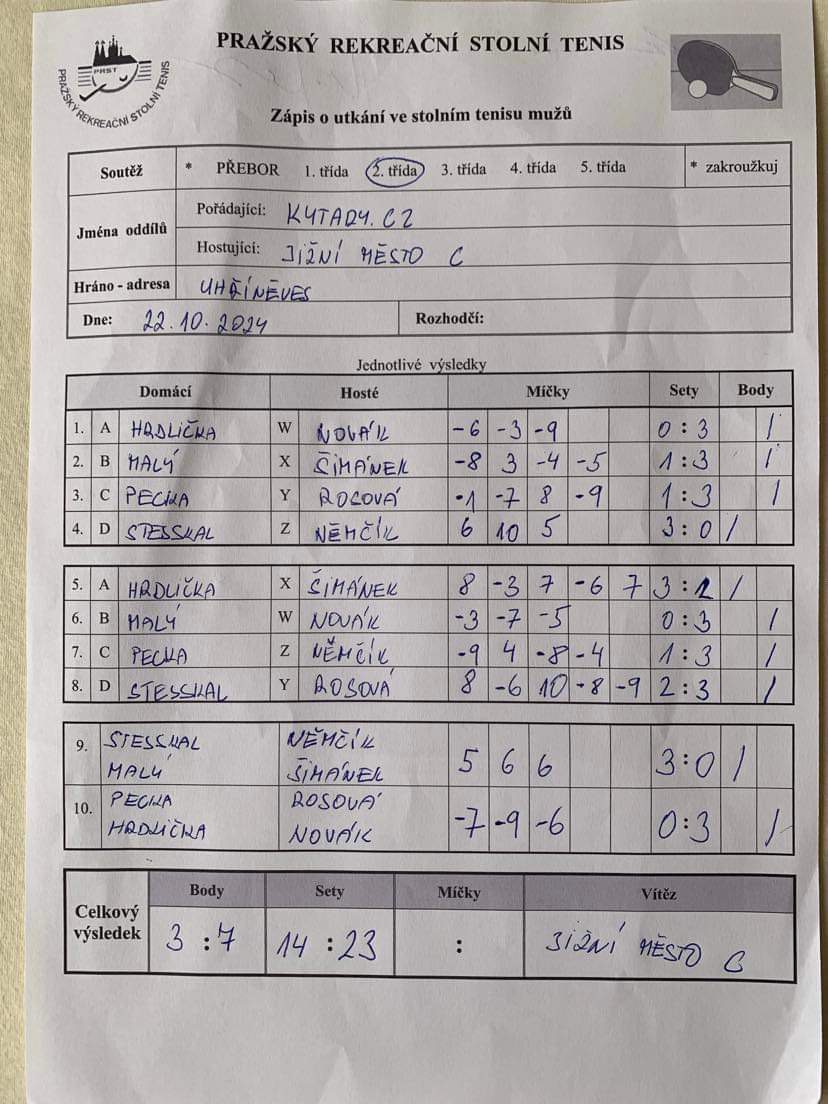 PRAŽSKÝ REKREAČNÍ STOLNÍ TENIS
PRST
PRAŽSKÝ REKREAČNÍ STOLNÍ TENIS
Zápis o utkání ve stolním tenisu mužů
Soutěž * PŘEBOR 1. třída 2. třída 3. třída 4. třída 5. třída * zakroužkuj
Jména oddílů
Pořádající: KYTADY.CZ
Hostující: JIŽNÍ MĚSTO C
Hráno - adresa UHŘÍNĚVES
Dne: 22.10.2024 Rozhodčí:
Jednotlivé výsledky
Domácí Hosté Míčky Sety Body
1. A HRDLIČKA W NOVÁK -6 -3 -9 0 : 3 /
2. B MALÝ X ŠIMÁNEK -8 3 -4 -5 1 : 3 /
3. C PECKA Y ROSOVÁ -1 -7 8 -9 1 : 3 /
4. D STESSKAL Z NĚMČÍK 6 10 5 3 : 0 /
5. A HRDLIČKA X ŠIMÁNEK 8 -3 7 -6 7 3 : 2 /
6. B MALÝ W NOVÁK -3 -7 -5 0 : 3 /
7. C PECKA Z NĚMČÍK -9 4 -8 -4 1 : 3 /
8. D STESSKAL Y ROSOVÁ 8 -6 10 -8 -9 2 : 3 /
9. STESSKAL NĚMČÍK
MALÝ ŠIMÁNEK 5 6 6 3 : 0 /
10. PECKA ROSOVÁ
HRDLIČKA NOVÁK -7 -9 -6 0 : 3 /
Celkový výsledek
Body Sety Míčky Vítěz
3 : 7 14 : 23 : JIŽNÍ MĚSTO C